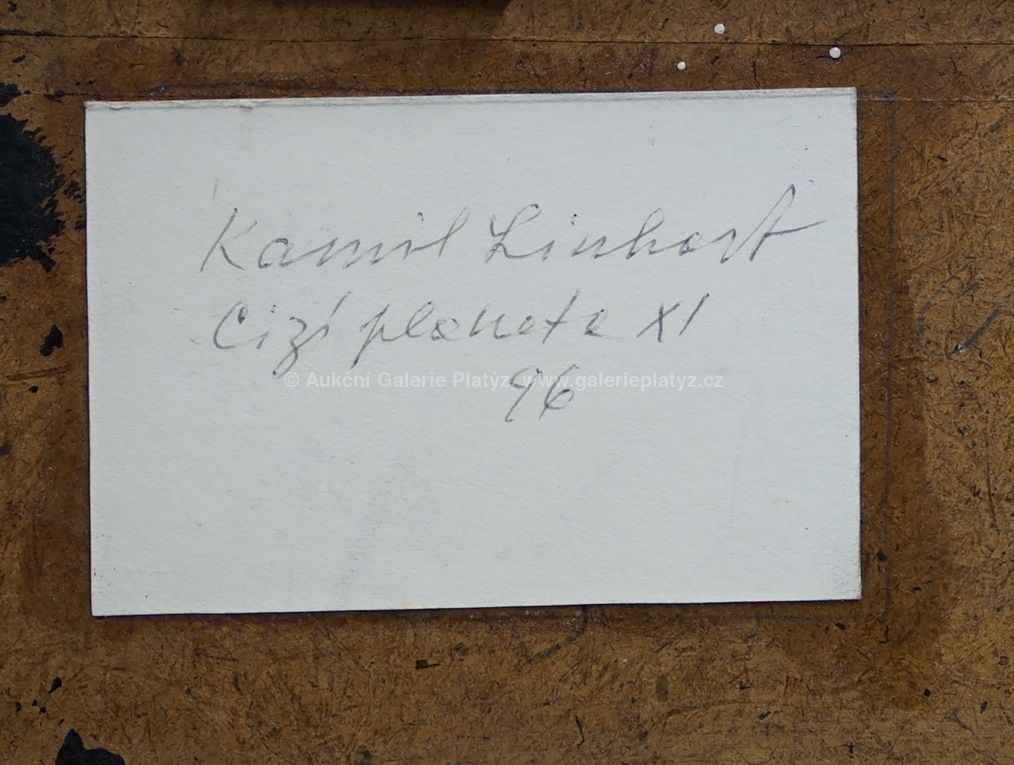 Kamil Linhart
Cizí planeta XI
© Aukční Galerie Platýz, www.galerieplatyz.cz
96